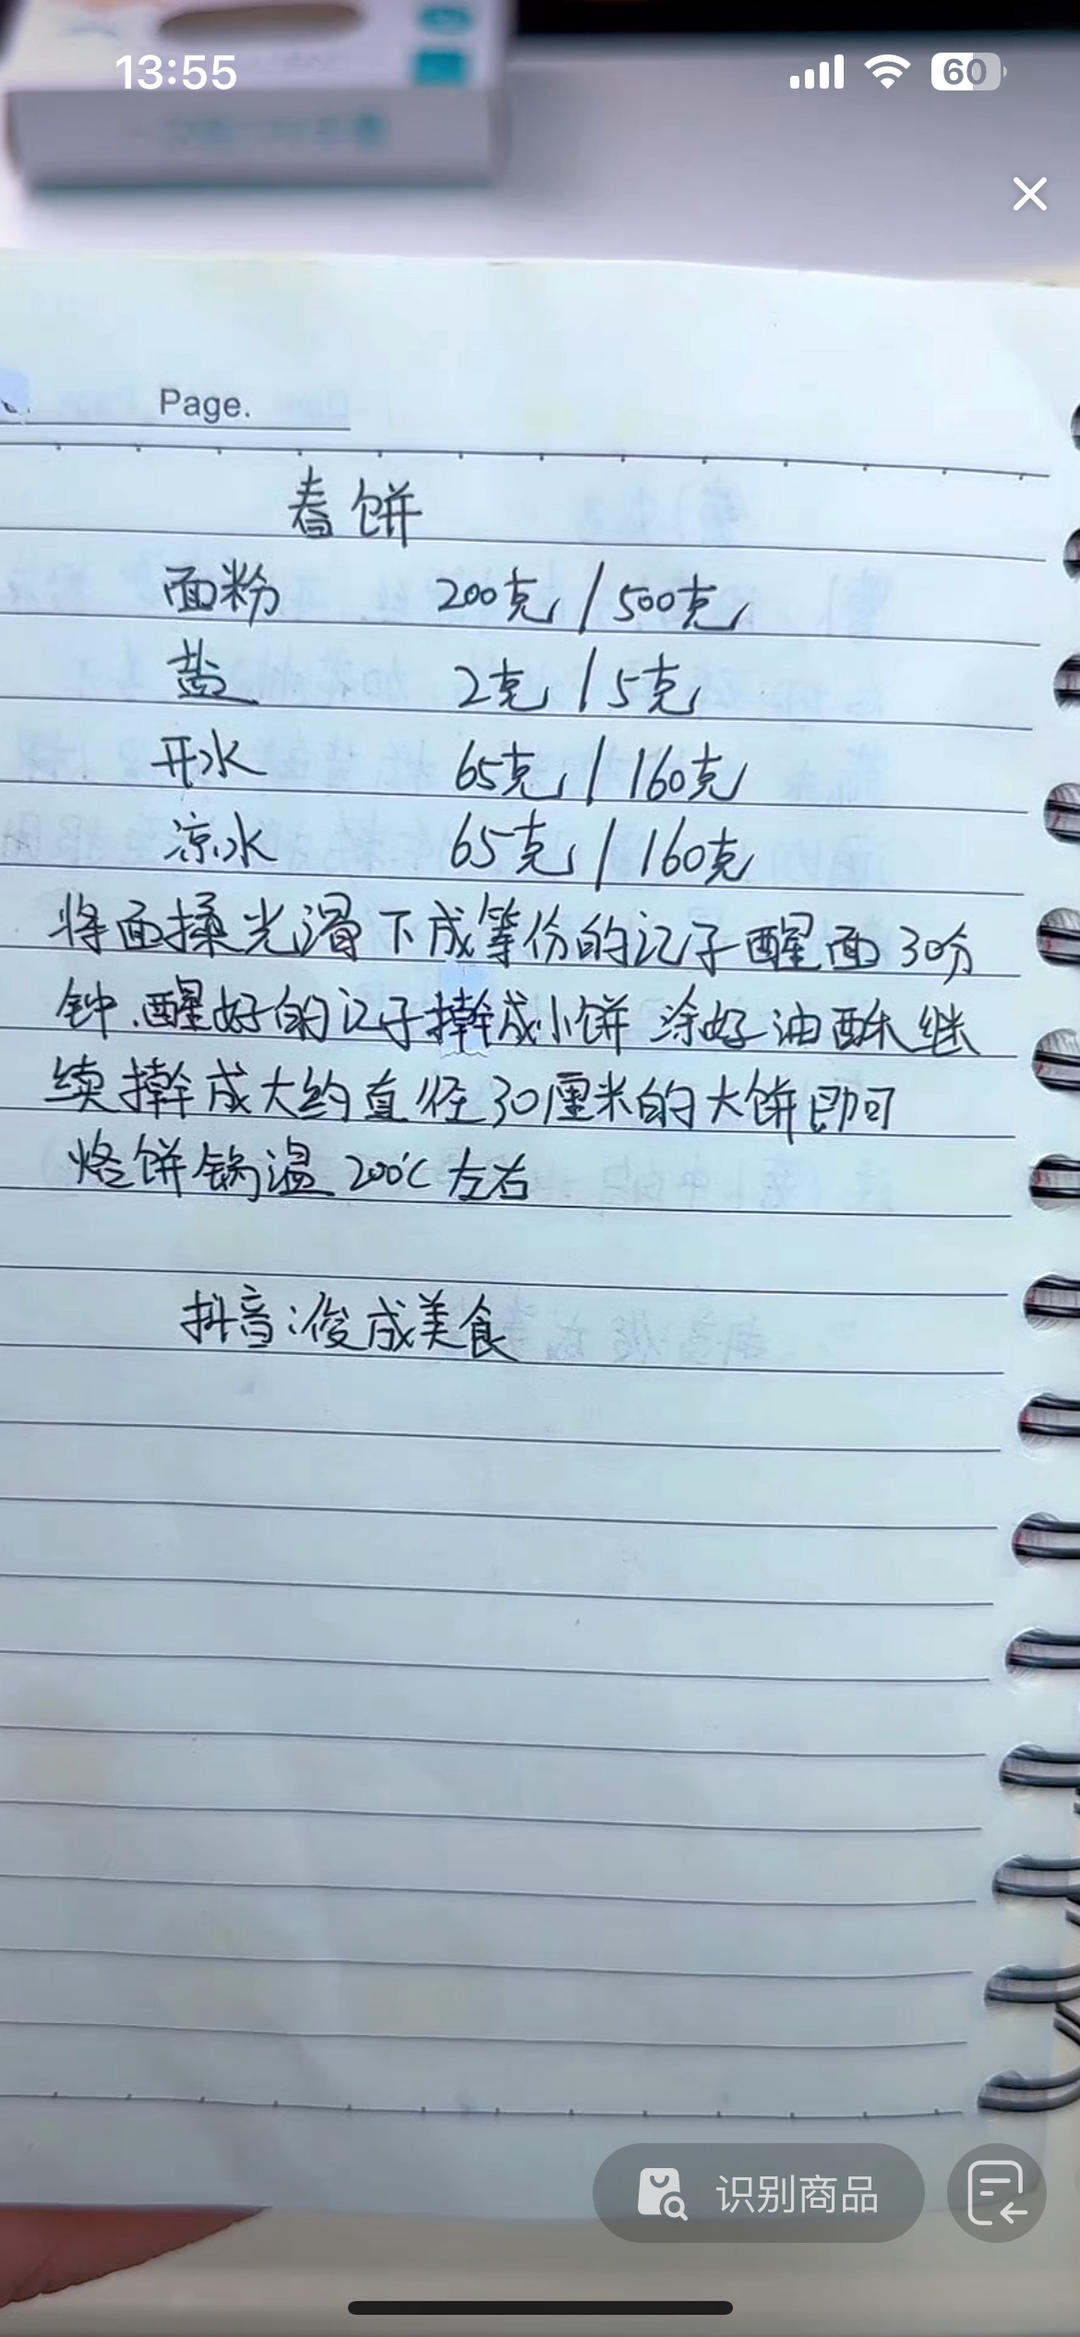 13:55
60
Page.
春饼
面粉 200克/500克
盐 2克/5克
开水 65克/160克
凉水 65克/160克
将面揉光滑下成等份的记子醒面30分
钟.醒好的记子擀成小饼 涂好油酥继
续擀成大约直径30厘米的大饼即可
烙饼锅温 200℃左右
抖音:俊成美食
识别商品